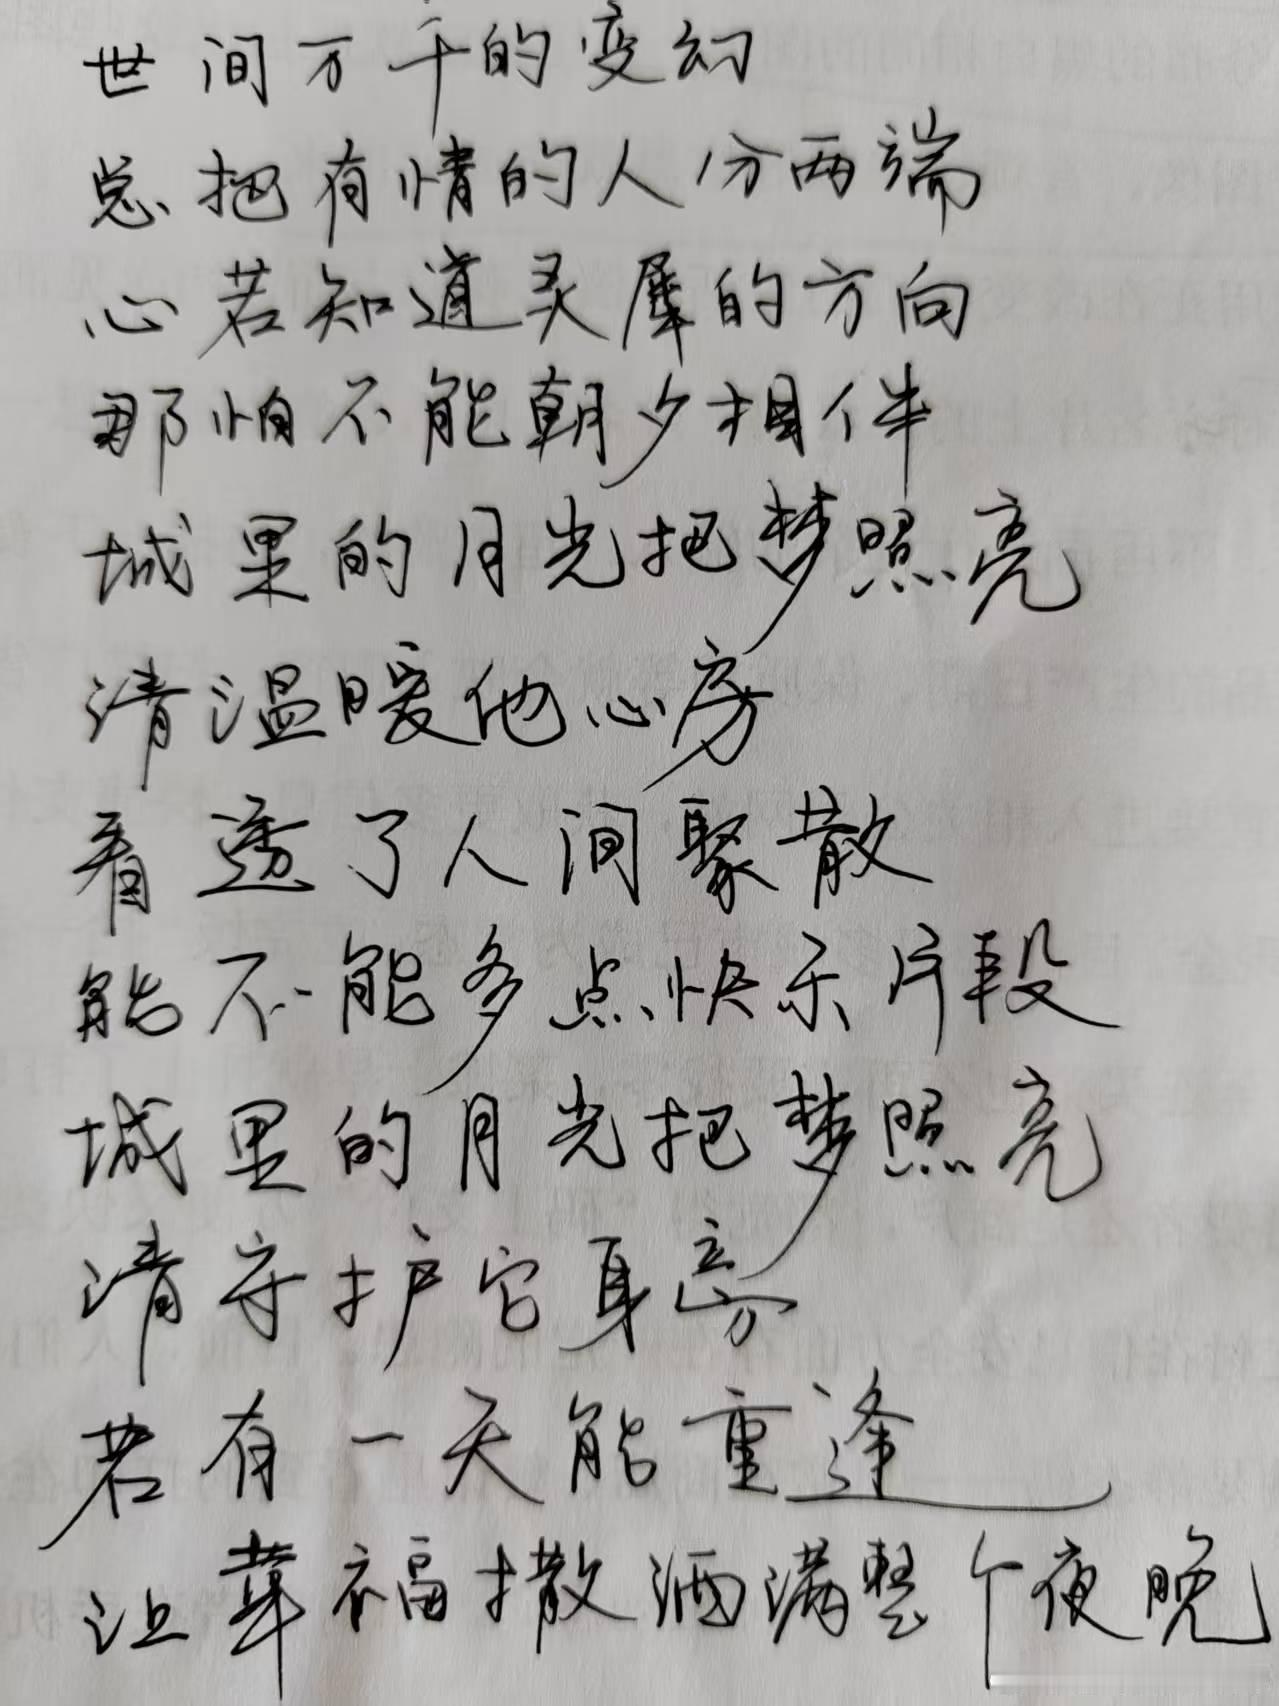 世间万千的变幻
总把有情的人分两端
心若知道灵犀的方向
那怕不能朝夕相伴
城里的月光把梦照亮
请温暖他心房
看透了人间聚散
能不能多点快乐片段
城里的月光把梦照亮
请守护它身旁
若有一天能重逢
让幸福撒洒满整个夜晚